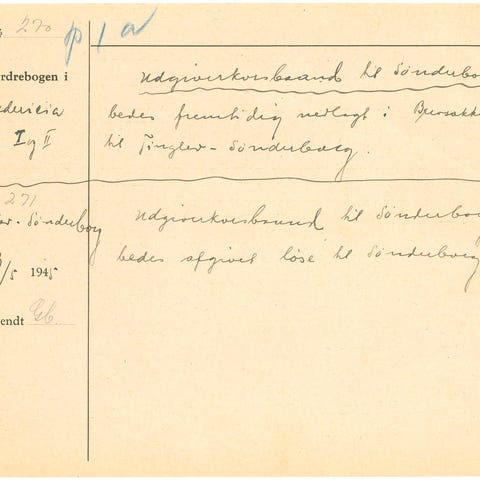 270
p 1 a
rdrebogen i
edericia
I og II
Udgiverkorsbaand til Sønderbo
bedes fremtidig nedlagt i
til Tinglev - Sønderborg.
271
ev - Sønderborg
/5 1945
endt Gb.
Udgiverkorsbaand til Sønderbor
bedes afgivet løse til Sønderborg